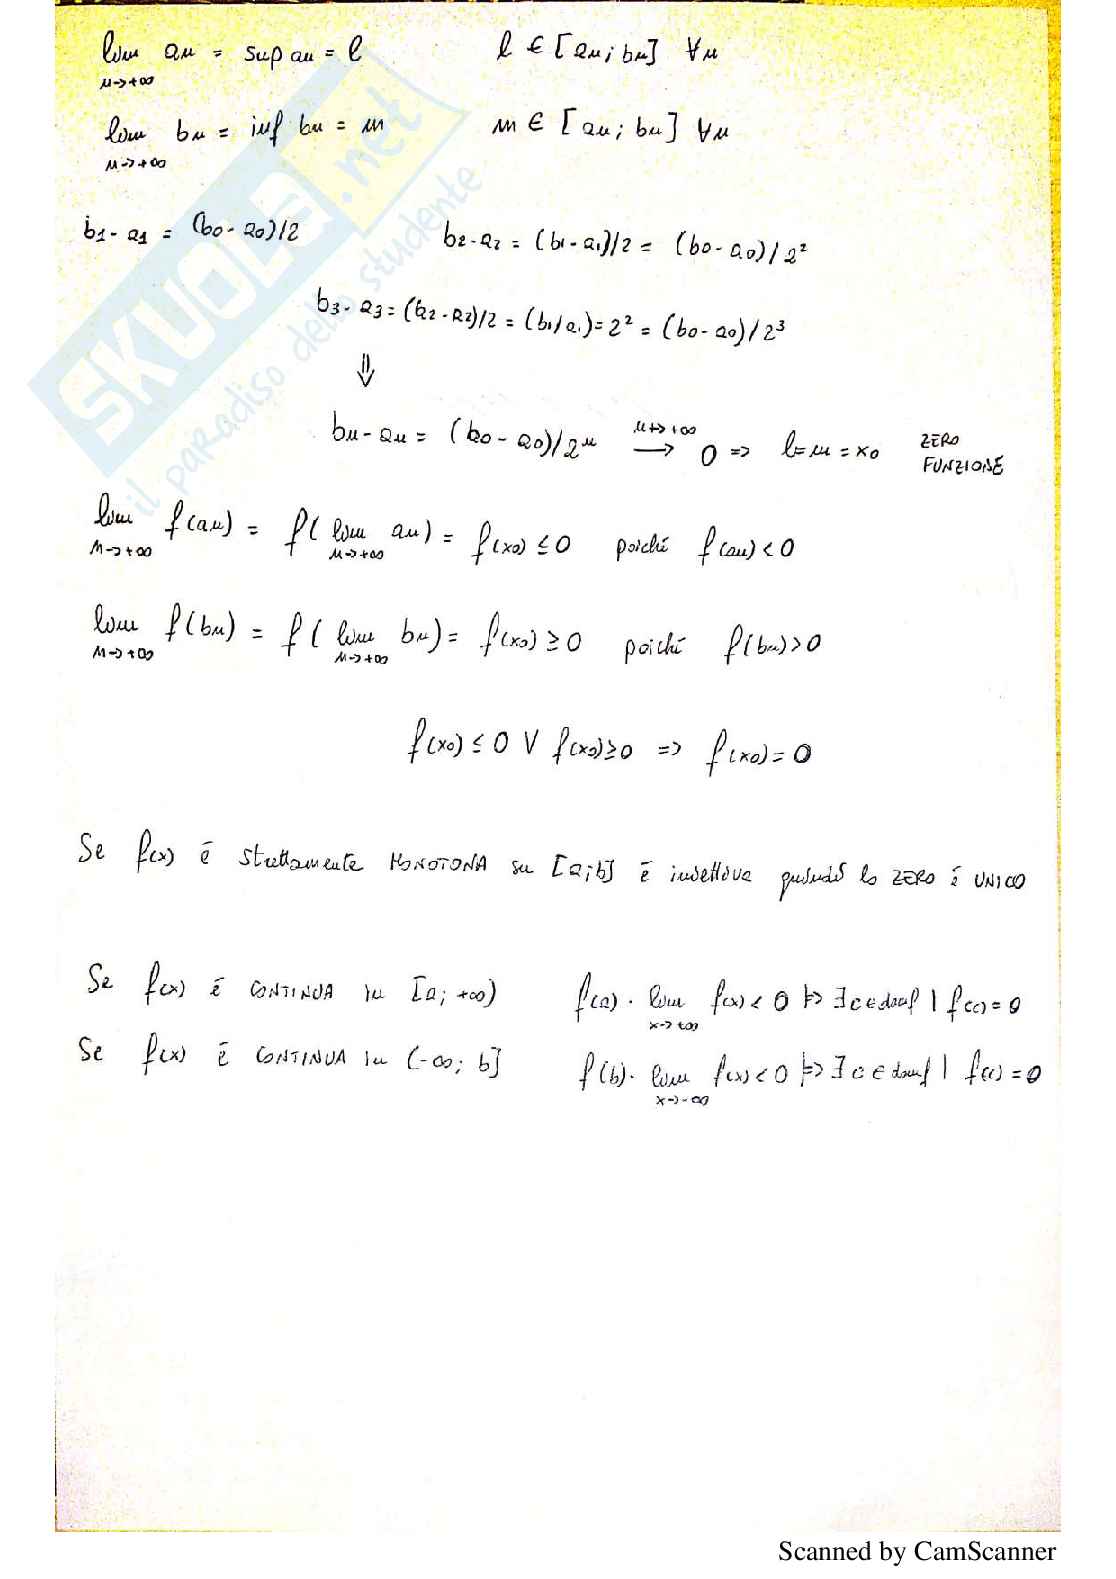 lim an = sup an = l   l ∈ [an; bn] ∀n
n→+∞
lim bn = inf bn = m   m ∈ [an; bn] ∀n
n→+∞
b1 - a1 = (b0 - a0)/2   b2 - a2 = (b1 - a1)/2 = (b0 - a0)/2²
b3 - a3 = (b2 - a2)/2 = (b1/a1) = 2² = (b0 - a0)/2³
⇓
bn - an = (b0 - a0)/2ⁿ ⟶ 0 => l = m = x0   ZERO FUNZIONE
n→+∞
lim f(an) = f( lim an) = f(x0) ≤ 0 poiché f(an) < 0
n→+∞   n→+∞
lim f(bn) = f( lim bn) = f(x0) ≥ 0 poiché f(bn) > 0
n→+∞   n→+∞
f(x0) ≤ 0 V f(x0) ≥ 0 => f(x0) = 0
Se f(x) è strettamente MONOTONA su [a; b] è iniettiva quindi lo ZERO è UNICO
Se f(x) è CONTINUA in [a; +∞)   f(a) · lim f(x) < 0 |=> ∃ c ∈ domf | f(c) = 0
x→+∞
Se f(x) è CONTINUA in (-∞; b]   f(b) · lim f(x) < 0 |=> ∃ c ∈ domf | f(c) = 0
x→-∞
SKUOLA.net
il paradiso dello studente
Scanned by CamScanner